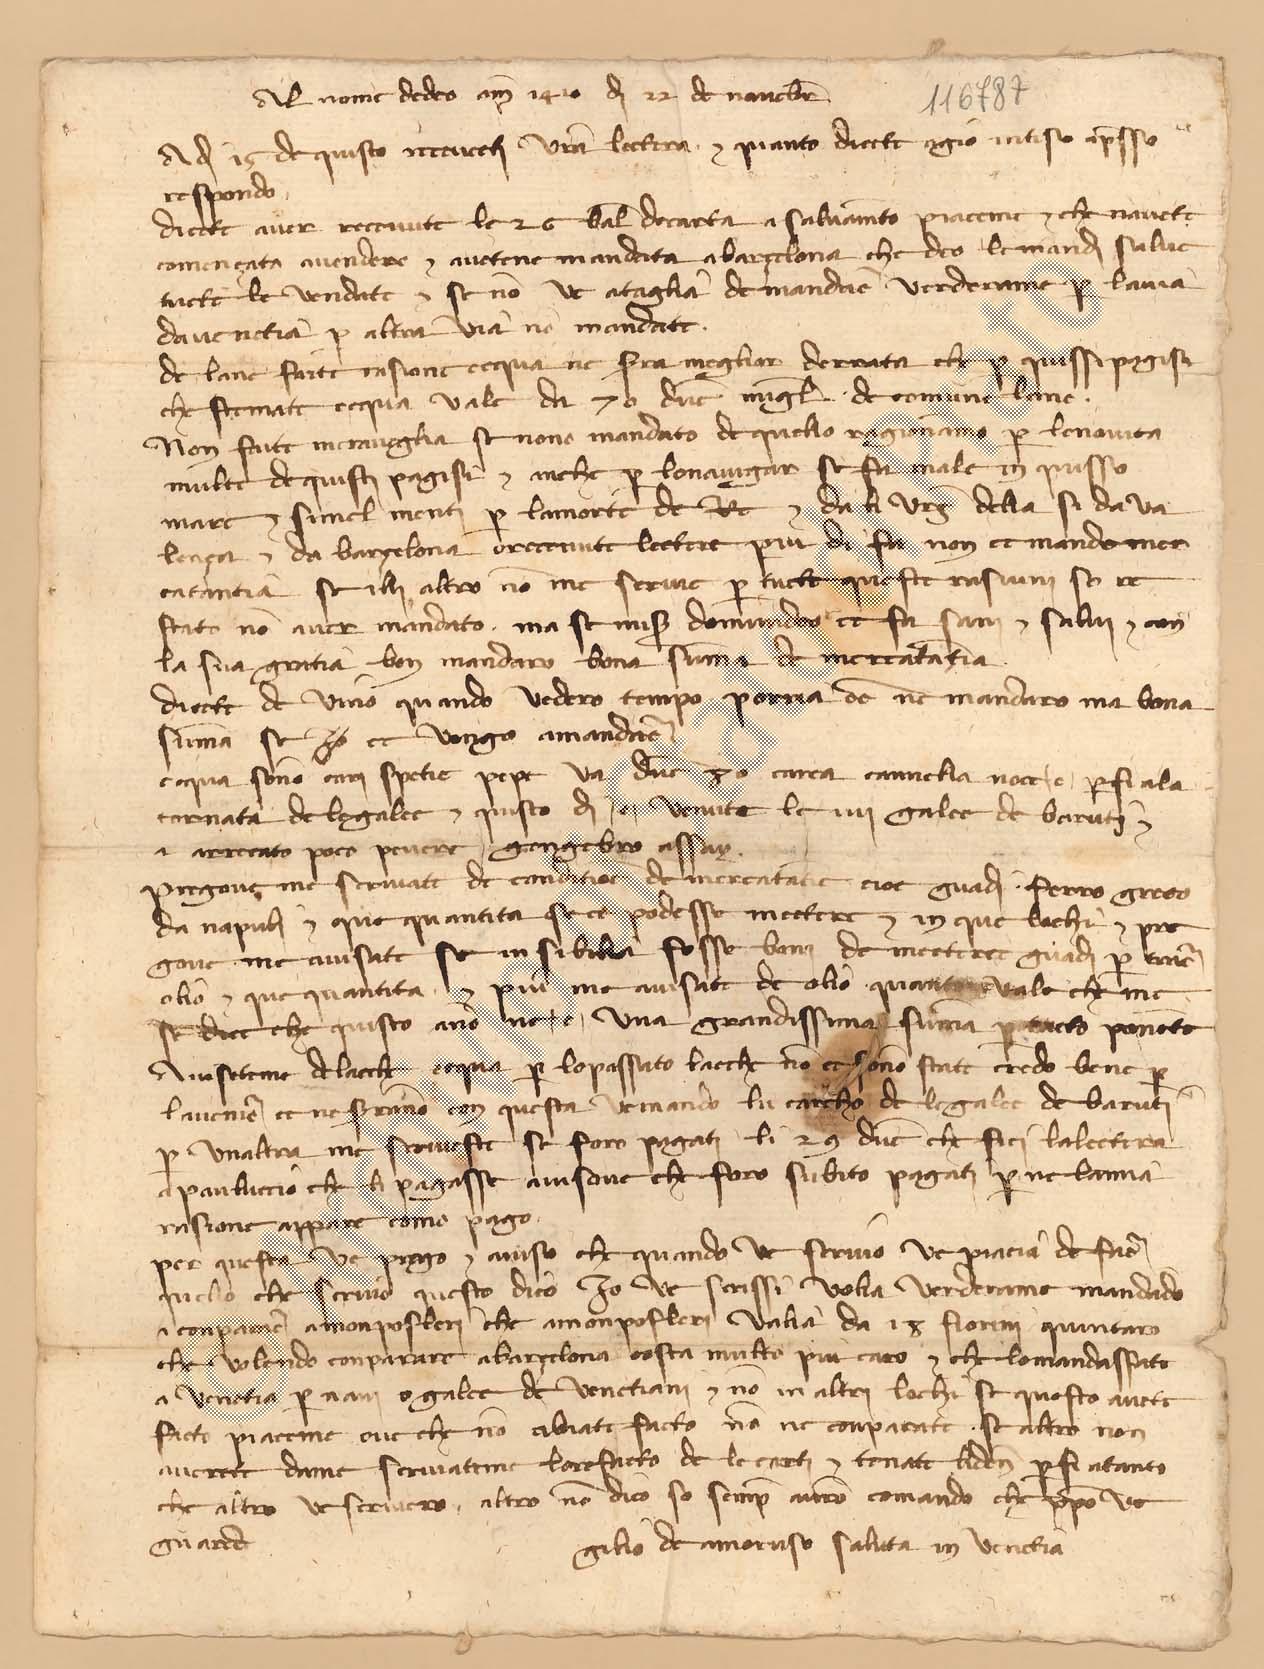 Al nome de deo am̄ 1410 dì 22 de novebr̄
116787
Ad 15 de quisto recevecti vr̄a lectera · & quanto dicete agio intiso apresso
respondo,
dicete aver recevute le 26 bal̄ de carta a salvamento piaceme & che n avete
comencata a vendere & avetene mandata a barcelona che deo le mandi salve
tucte le vendate & se nō ve ataglia de mandare verderame p̲ la via
da venetia p̲ altra via nō mandate.
de lane faite rasione ecqua ne sera meglior derrata che p̲ quissi pagisi
che stemate ecqua vale da 70 duc̄ migl̄ · de comune lane.
Non faite meraveglia se nono mandato de quello ragionamo p̲ le novita
multe de quisti pagisi & anche p̲ lo navigar se fa male in quisso
mare & simel menti p̲ la morte de Re & da li della si da va
lenca & da barcelona o recevute lectere piu dì fa non ce mando mer
catantia se illi altro nō me scrive p̲ tucte queste rasiuni so re
stato nō aver mandato · ma se mis̄ domindeo ce fa sani & salvi & con
la sua gratia ben mandaro bona suma de mercatantia.
dicete de vino quando vedero tempo ne mandaro una bona
suma se io ce vengo a mandare
ecqua sono cari spetie pepe va duc̄ 80 carca cannella noce e p̲fi a la
tornata de le galee & quisto dì e venute le iiii galee de baruti &
a arrecato poco pevere gengebro assay.
pregove me scrivate de conditioē de mercatantie cioe guadi · ferro greco
da napuli & que quantita se ce podesse mectere & in que lochi & pre
gove me avisate se in sibilia fosse bonⁱ de mectere guadi p̲
olio & que quantita & piu me avisate de olio quanto vale che me
se dice che quisto ano ne e una grandissima suma p̲ tucto ponente
Aviseteme de lacche ecqua p̲ lo passato lacche nō ce sono state credo bene p̲
l avenire ce ne seranno con questa ve mando lu carcho de le galee de baruti
p̲ un altra me scriveste se foro pagati li 29 duc̄ che fici la lectera
a pauluccio che li pagasse avisove che foro subito pagati p̲ ne la mia
rasione appare como pago.
per questa ve prego & aviso che quando ve scrivo ve piacia de fare
quello che scrivo questo dico Io ve scrissi volia verderame mandado
a conparare a monposleri che a monposleri valia da 18 fiorini quintaro
che volendo conparare a barcelona costa multo piu caro & che lo mandassate
a venetia p̲ navi o galee de venetiani & nō in altri lochi se questo avete
facto piaceme ove che nō abiate facto nō ne conparate · se altro non
averete da me scrivateme lo refacto de le carti & tenate li den̄ p̲fi a tanto
che altro ve scrivero, altro nō dico so semp̄ a vr̄o comando che p̲o ve
guarde
gilio de amoruso saluta in venetia